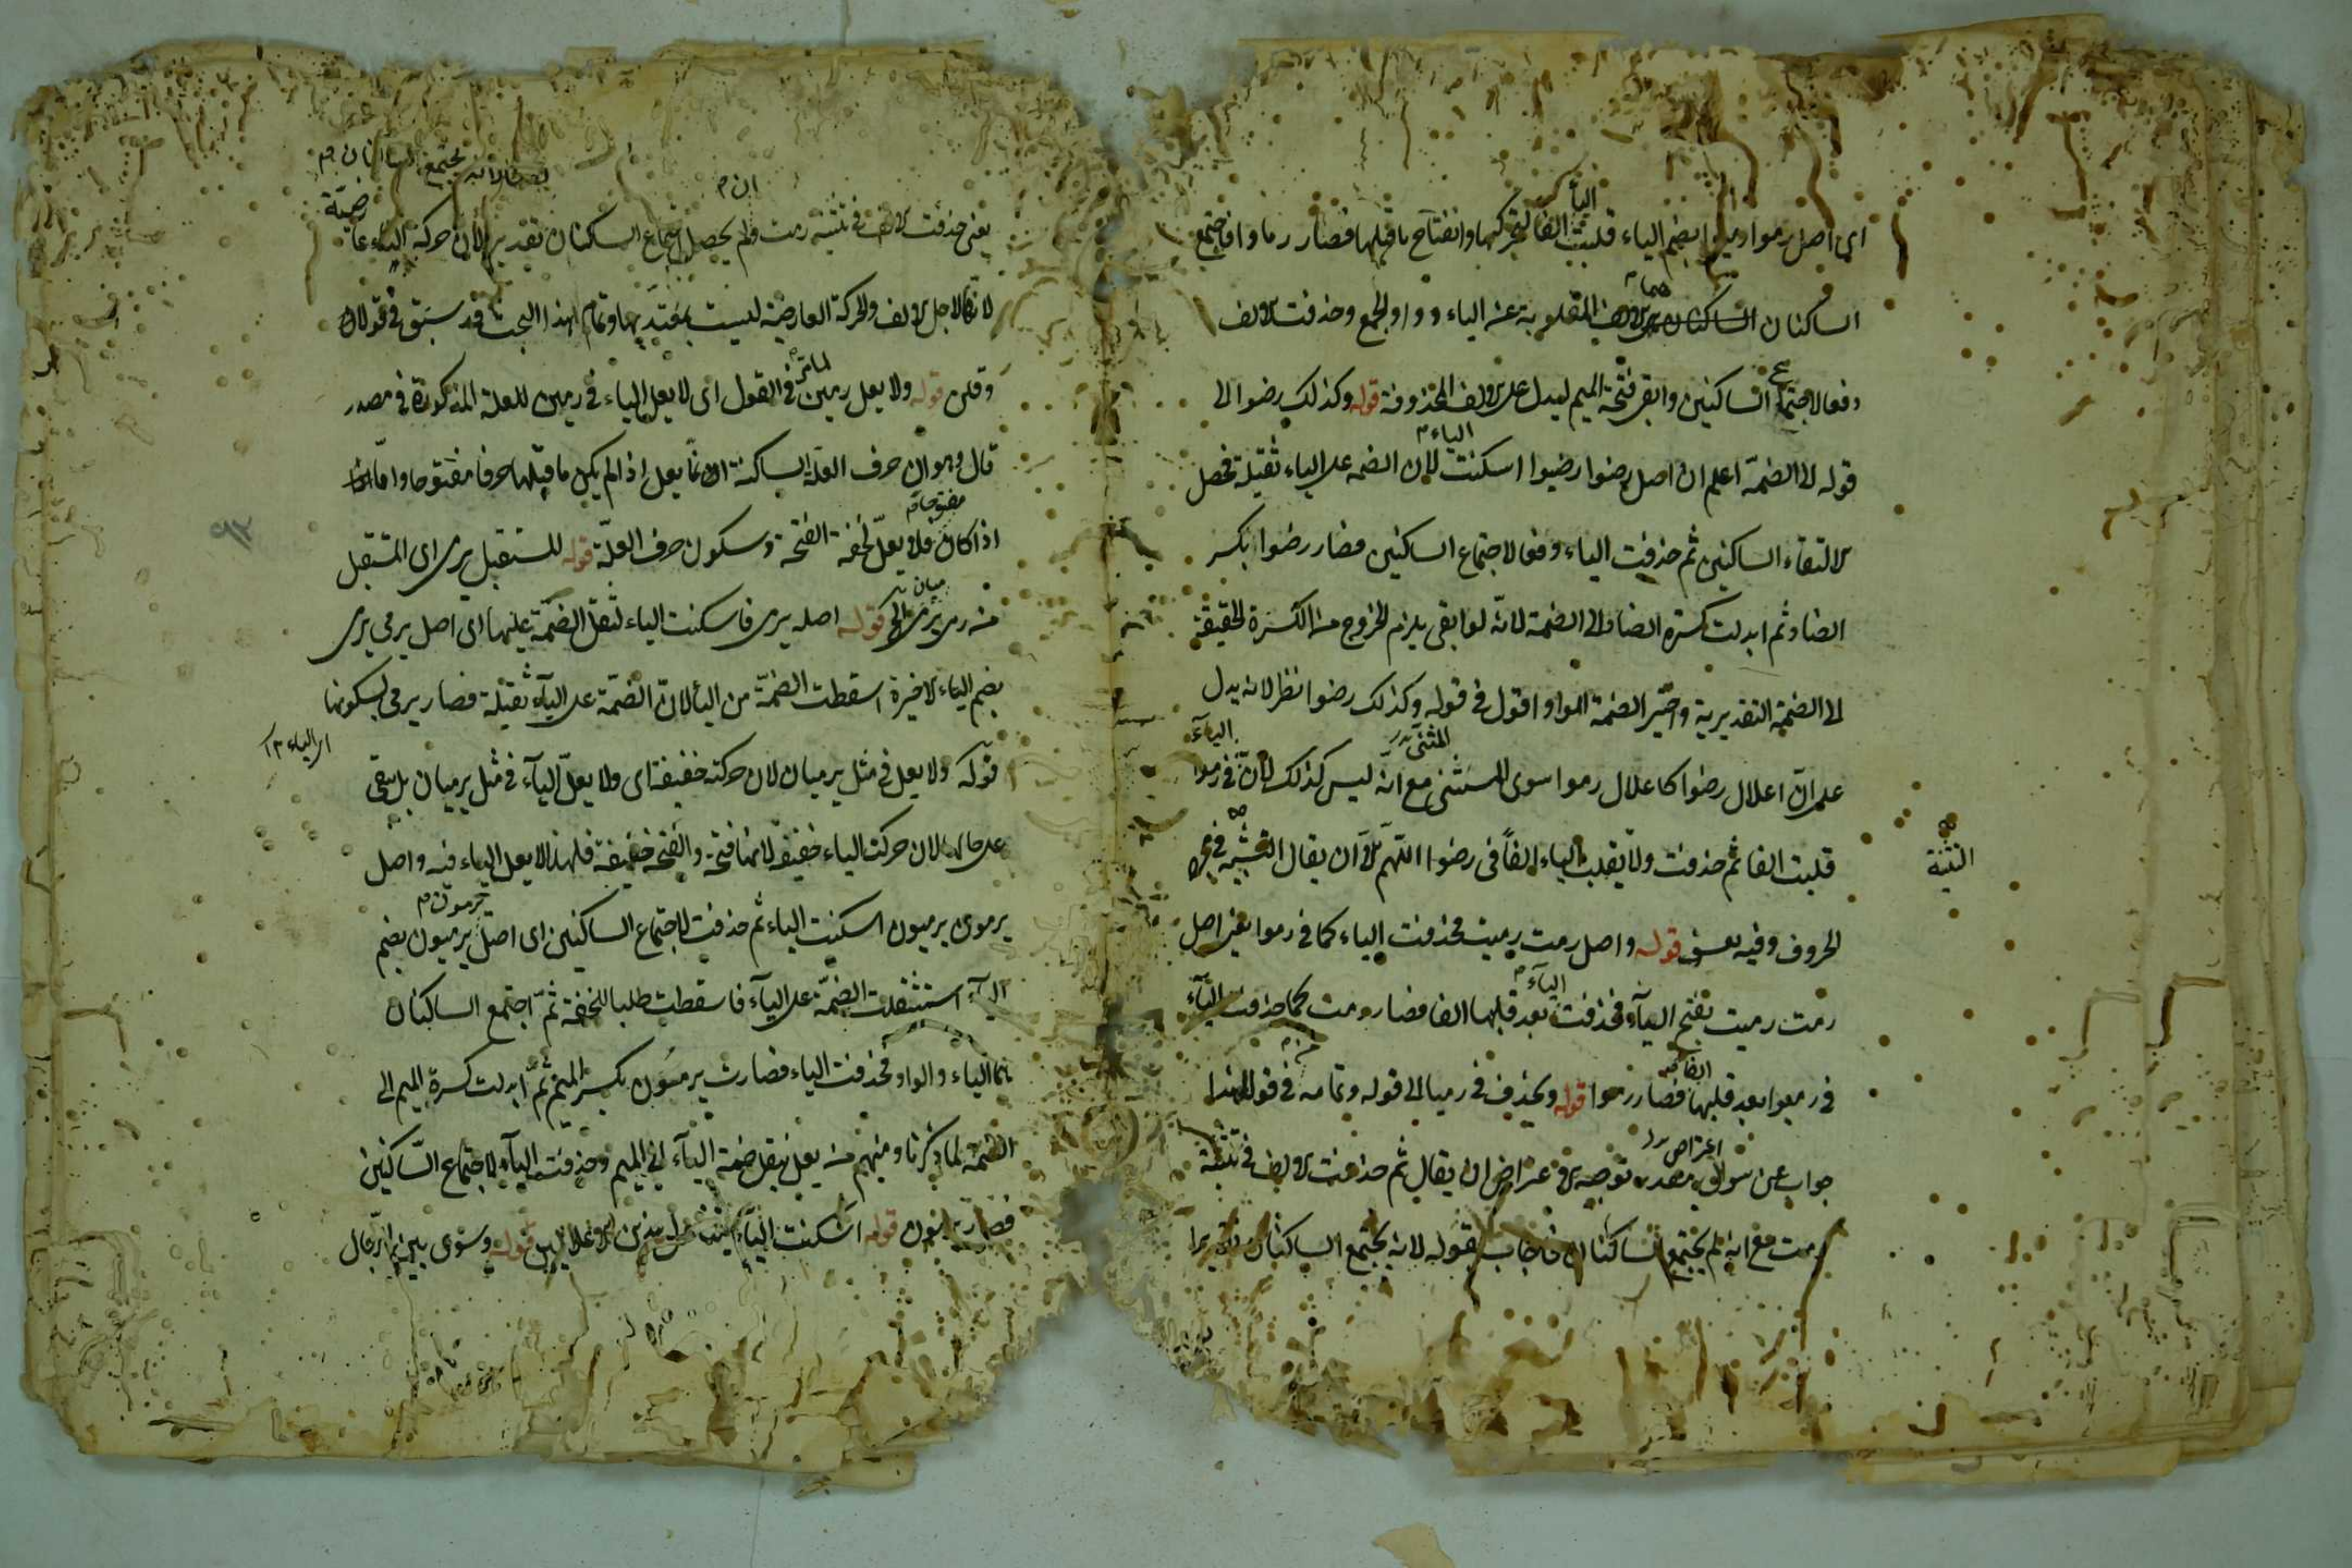 اى اصل رموا رميوا بضم الياء قلبت الياء الفا لتحركها وانفتاح ما قبلها فصار رماوا فاجتمع
الساكنان هما الالف المقلوبة عن الياء وواو الجمع وحذفت الالف
دفعا لاجتماع الساكنين وابقى فتحة الميم ليدل على الالف المحذوفة قوله وكذلك رضوا الى
قوله الى الضمة اعلم ان اصل رضوا رضيوا اسكنت الياء لان الضمة على الياء ثقيلة فحصل
الالتقاء الساكنين ثم حذفت الياء دفعا لاجتماع الساكنين فصار رضوا بكسر
الضاد ثم ابدلت كسرة الضاد الى الضمة لانه لو ابقى يلزم الخروج من الكسرة الحقيقة
الى الضمة التقديرية واختير الضمة الواو اقول فى قوله وكذلك رضوا نظر لانه يدل
على ان اعلال رضوا كاعلال رموا سوى المستثنى مع انه ليس كذلك لان الياء فى رموا
قلبت الفا ثم حذفت ولا يقلب الياء الفا فى رضوا اللهم الا ان يقال التشبيه فى
التشبيه
الحروف وفيه تعسف قوله واصل رمت رميت فحذفت الياء كما فى رموا يعنى اصل
رمت رميت بفتح الياء فحذفت الياء بعد قلبها الفا فصار رمت كما حذفت الياء
فى رميوا بعد قلبها الفا فصار رموا قوله ويحذف فى رمتا الى قوله وتمامه فى قولا هذا
جواب عن سؤال مقدر توجيه الاعتراض ان يقال ثم حذفت الالف فى تثنية
رمت مع انه لم يجتمع الساكنان فاجاب بقوله لانه يجتمع الساكنان تقديرا
يعنى حذفت الالف فى تثنية رمت وان لم يحصل اجتماع الساكنان تقديرا لان حركة التاء عارضية
لانها لاجل الالف والحركة العارضية ليست بمعتد بها وتمام هذا البحث قد سبق فى قولا
وقلن قوله ولا يعل رمين لما مر فى القول اى لا يعل الياء فى رمين للعلة المذكورة فى مصدر
قال وهو ان حرف العلة الساكنة انما يعل اذا لم يكن ما قبلها حرفا مفتوحا واما
اذا كان مفتوحا فلا يعل لخفة الفتحة وسكون حرف العلة قوله المستقبل يرمى اى المستقبل
من رمى يرمى الخ قوله اصله يرمى فاسكنت الياء لثقل الضمة عليها اى اصل يرمى يرمى
بضم الياء الاخيرة اسقطت الضمة من الياء لان الضمة على الياء ثقيلة فصار يرمى بسكونها
قوله ولا يعل فى مثل يرميان لان حركته خفيفة اى ولا يعل الياء فى مثل يرميان بل يبقى
على حالها لان حركت الياء خفيفة لانها فتحة والفتحة خفيفة فلهذا لا يعل الياء فيه واصل
يرمون يرميون اسكنت الياء ثم حذفت لاجتماع الساكنين اى اصل يرمون يرميون بضم
الياء استثقلت الضمة على الياء فاسقطت طلبا للخفة ثم اجتمع الساكنان
هما الياء والواو فحذفت الياء فصارت يرمون بكسر الميم ثم ابدلت كسرة الميم الى
الضمة لما ذكرنا ومنهم من يعل بنقل ضمة الياء الى الميم وحذفت الياء لاجتماع الساكنين
فصار يرمون قوله اسكنت الياء قوله وسوى بين الرجال